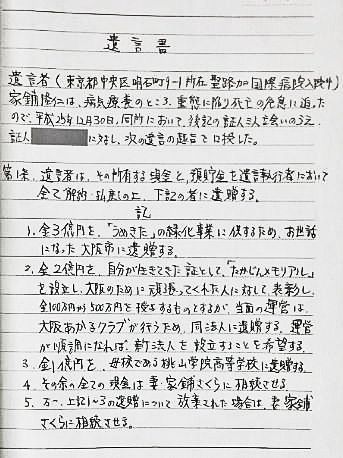 遺言書
遺言者(東京都中央区明石町9-1所在 聖路加国際病院入院中)
家鋪隆仁は、病気療養のところ、重態に陥り死亡の危急に迫った
ので、平成25年12月30日、同所において、後記の証人3人立会いのうえ、
証人 に対し、次の遺言の趣旨を口授した。
第1条、遺言者は、その所有する現金と、預貯金を遺言執行者において
全て解約・払戻しの上、下記の者に遺贈する。
記
1. 金3億円を、「うめきた」の緑化事業に供するため、お世話
になった大阪市に遺贈する。
2. 金2億円を、自分が生きてきた証として、「たかじんメモリアル」
を設立し、大阪のために頑張ってくれた人に対して表彰し、
金100万円から500万円を授与するものとするが、当面の運営は、
大阪あかるクラブが行うため、同法人に遺贈する。運営
が順調になれば、新法人を設立することを希望する。
3. 金1億円を、母校である桃山学院高等学校に遺贈する。
4. その余の全ての現金は妻・家鋪さくらに相続させる。
5. 万一、上記1〜3の遺贈について放棄された場合は、妻家鋪
さくらに相続させる。